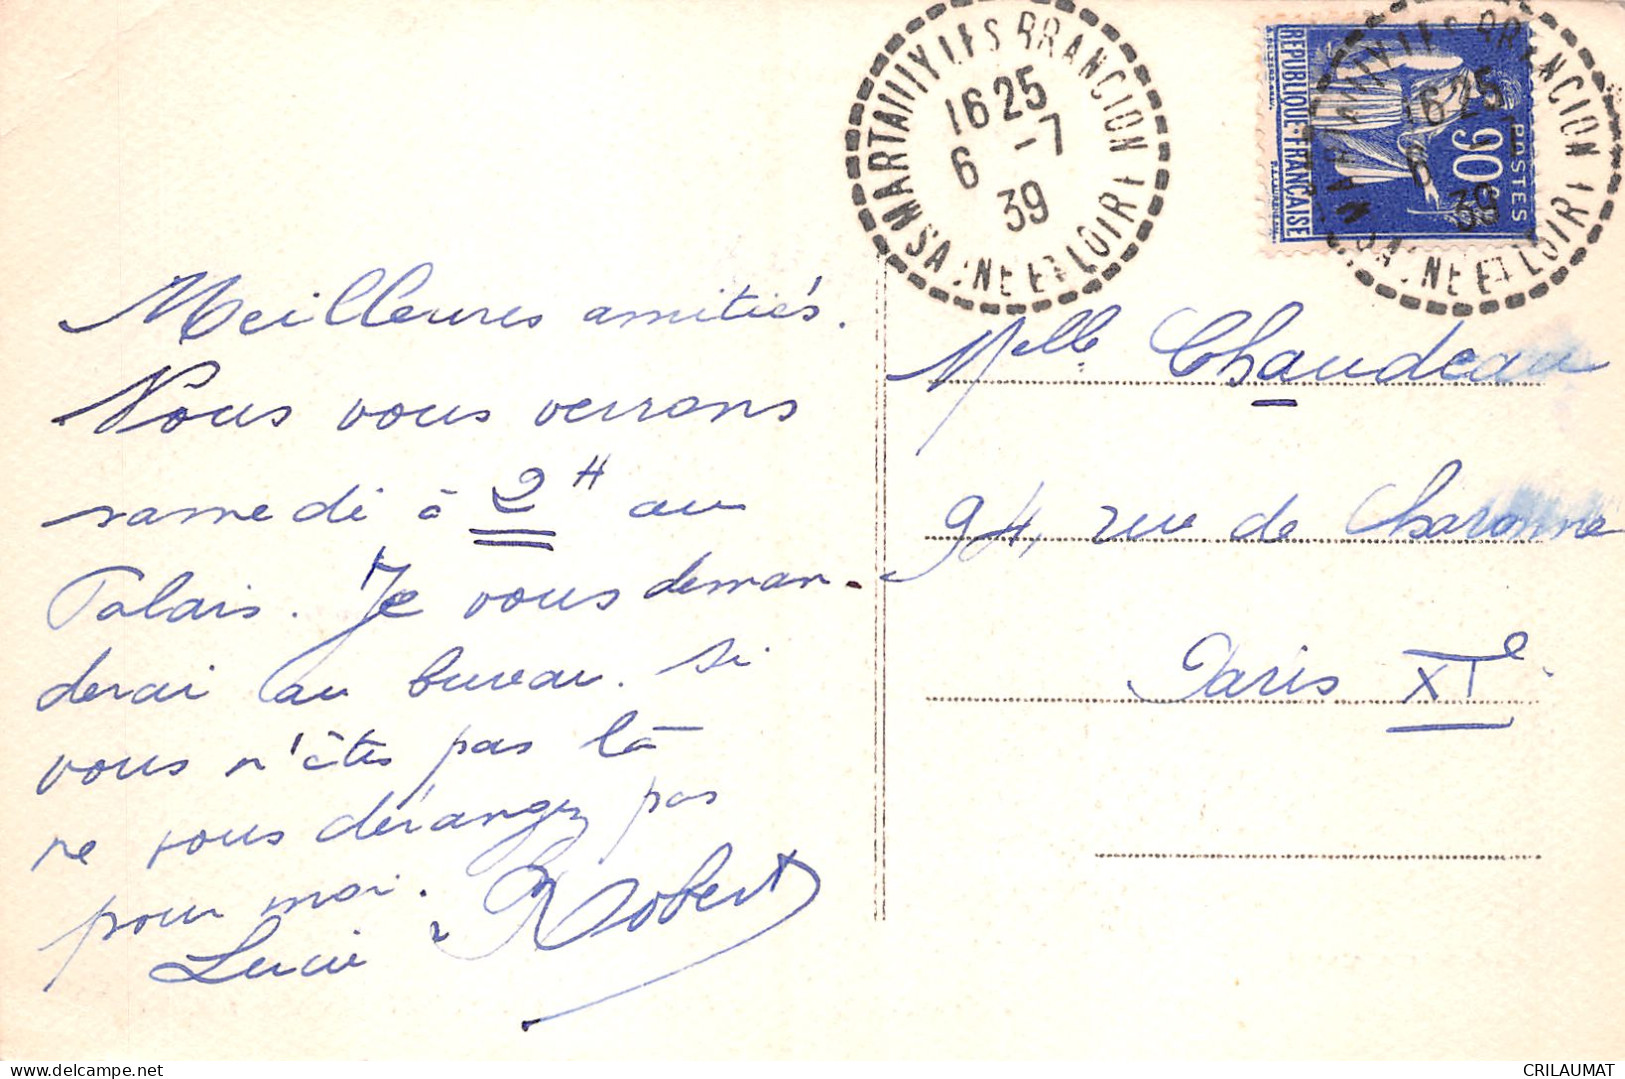 MARTAILLY LES BRANCION
16 25
6 -7
39
SAONE ET LOIRE
REPUBLIQUE FRANCAISE
POSTES
90c
MARTAILLY LES BRANCION
16 25
6
39
SAONE ET LOIRE
Meilleures amitiés.
Nous vous verrons
samedi à 2H au
Palais. Je vous deman-
derai au bureau. si
vous n'êtes pas là
ne vous dérangez pas
pour moi.
Lucie Robert
Melle Chaudeau
94, rue de Charonne
Paris XIe
CRILAUMAT